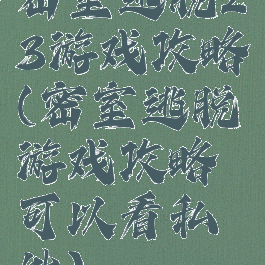 密室逃脱2
3游戏攻略
(密室逃脱
游戏攻略
可以看私